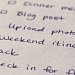 Dinner me
Blog post
Upload photo
Weekend itine
back
eck in for f